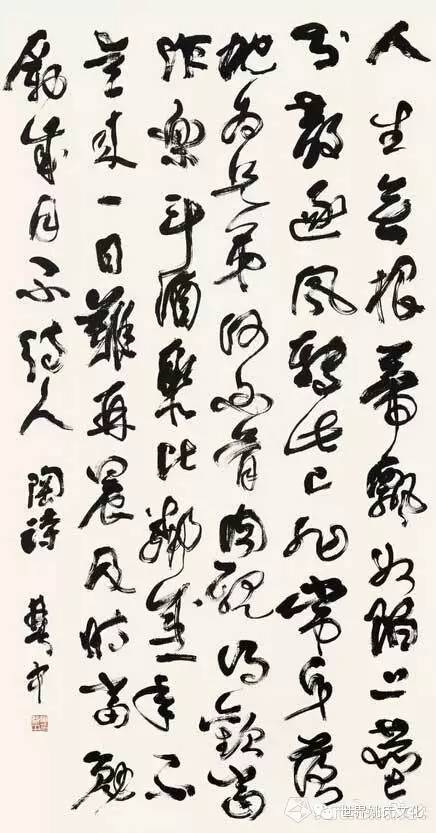 人生無根蒂飄如陌上塵
分散逐風轉此已非常身落
地為兄弟何必骨肉親得歡當
作樂斗酒聚比鄰盛年不
重來一日難再晨及時當勉
勵歲月不待人 陶詩
世界姚氏文化